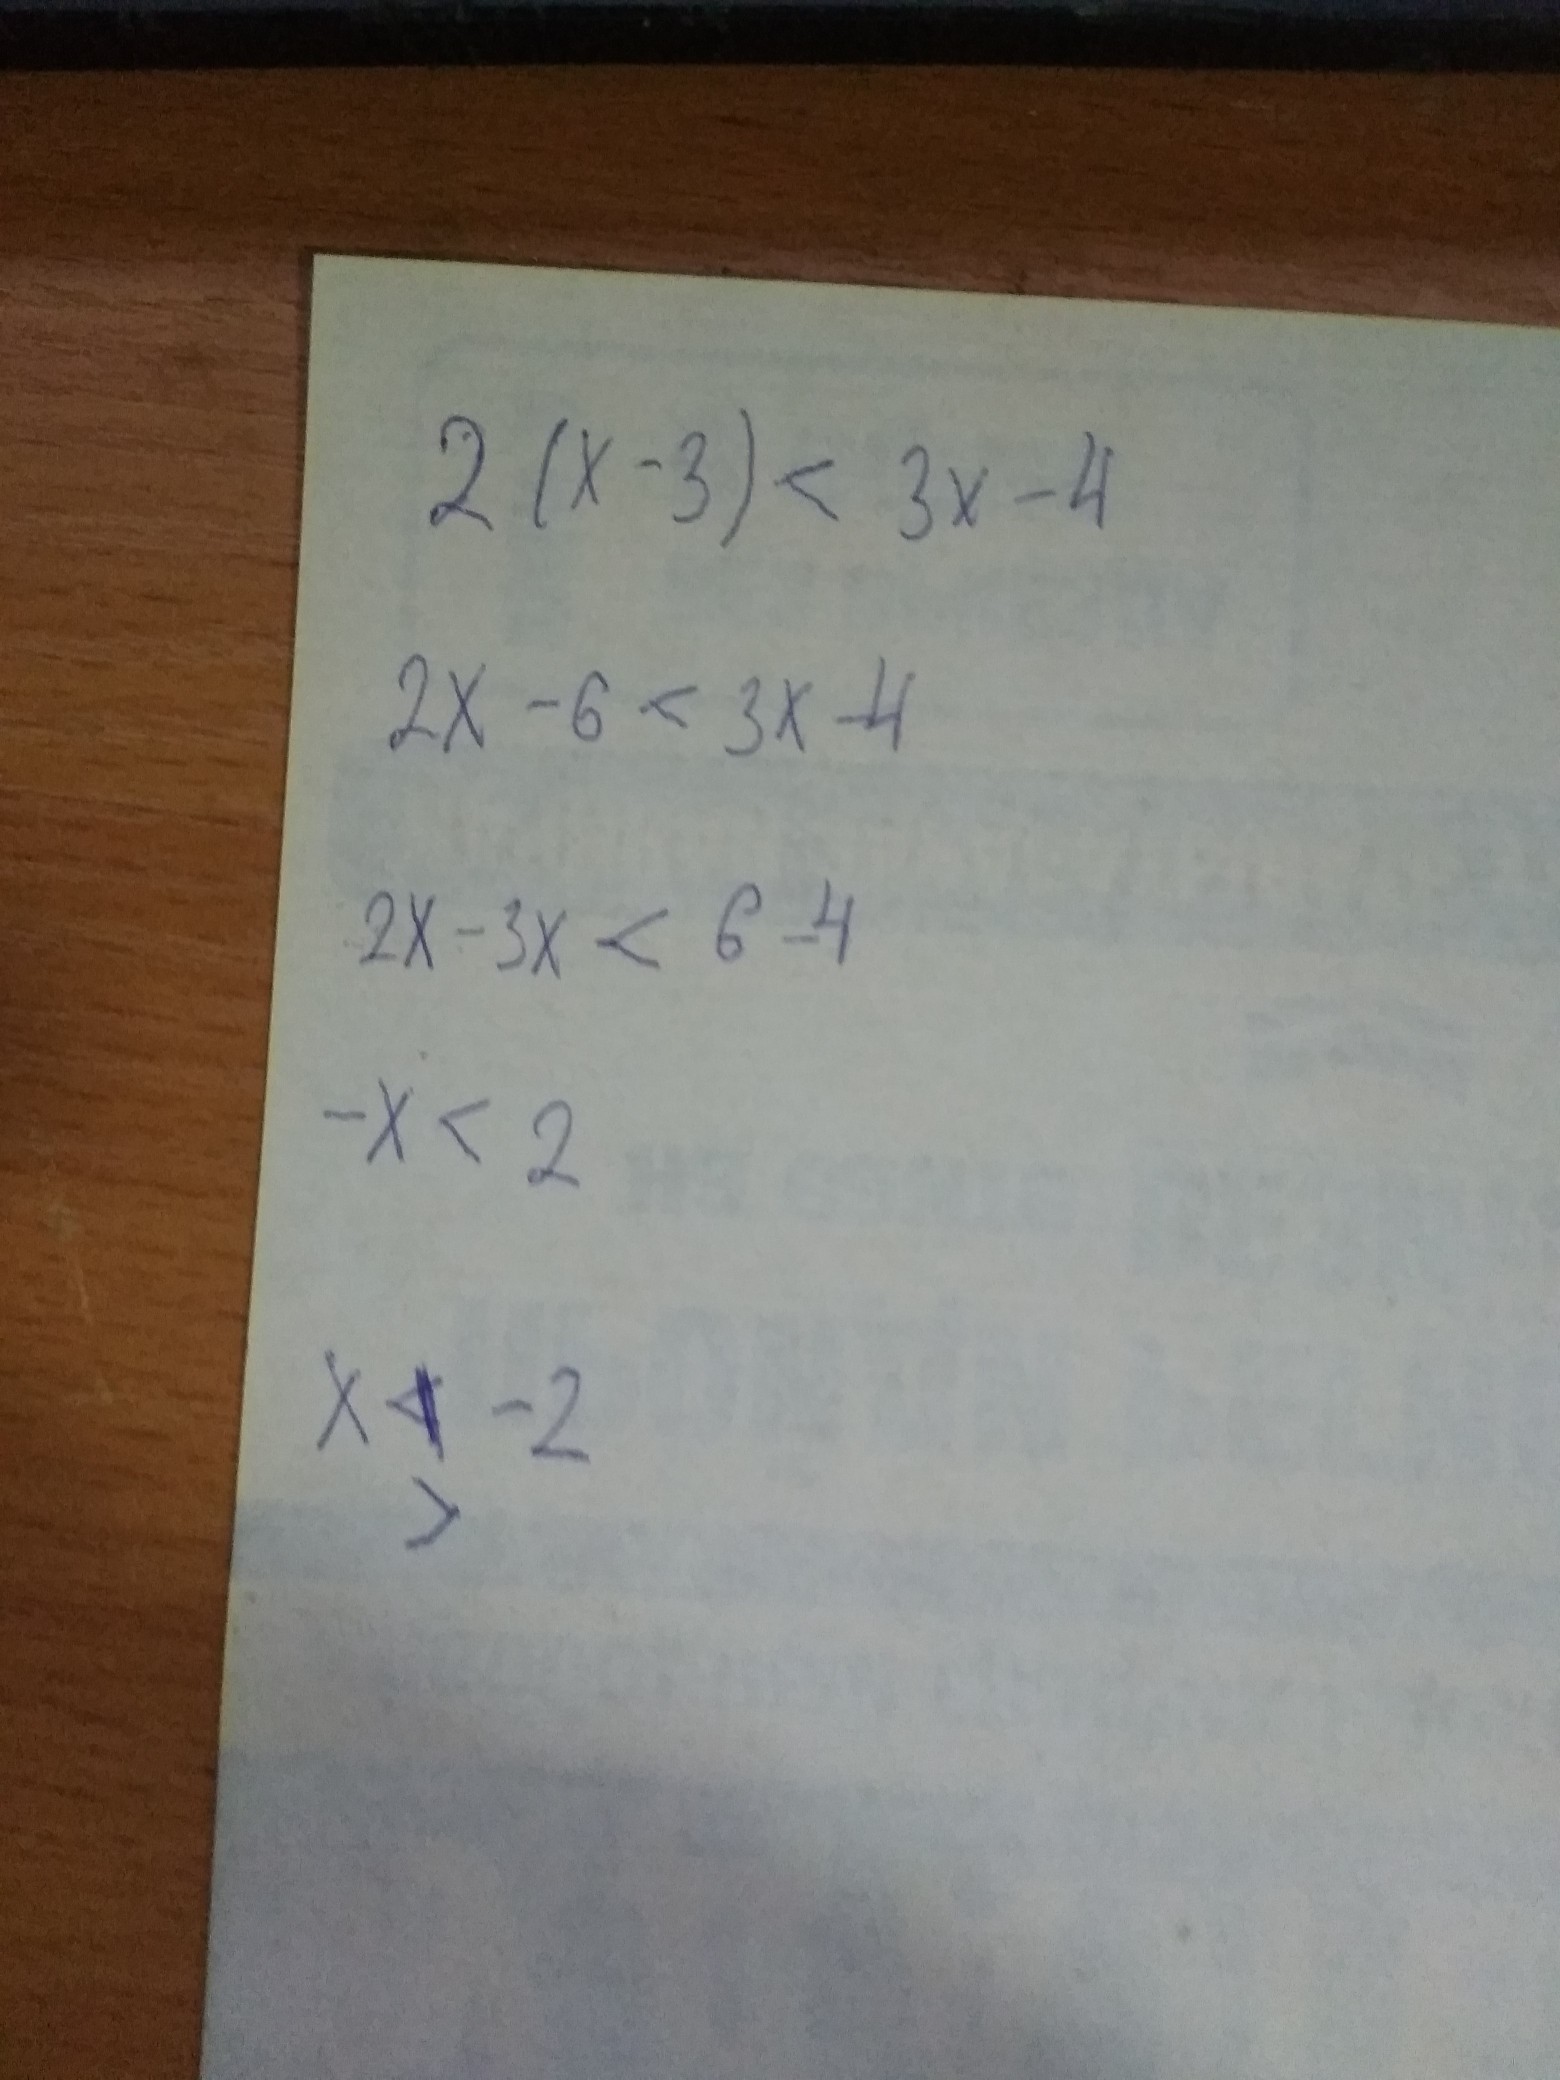 2(x-3)< 3x-4
2x-6<3x-4
2x-3x< 6-4
-x< 2
x < -2
>